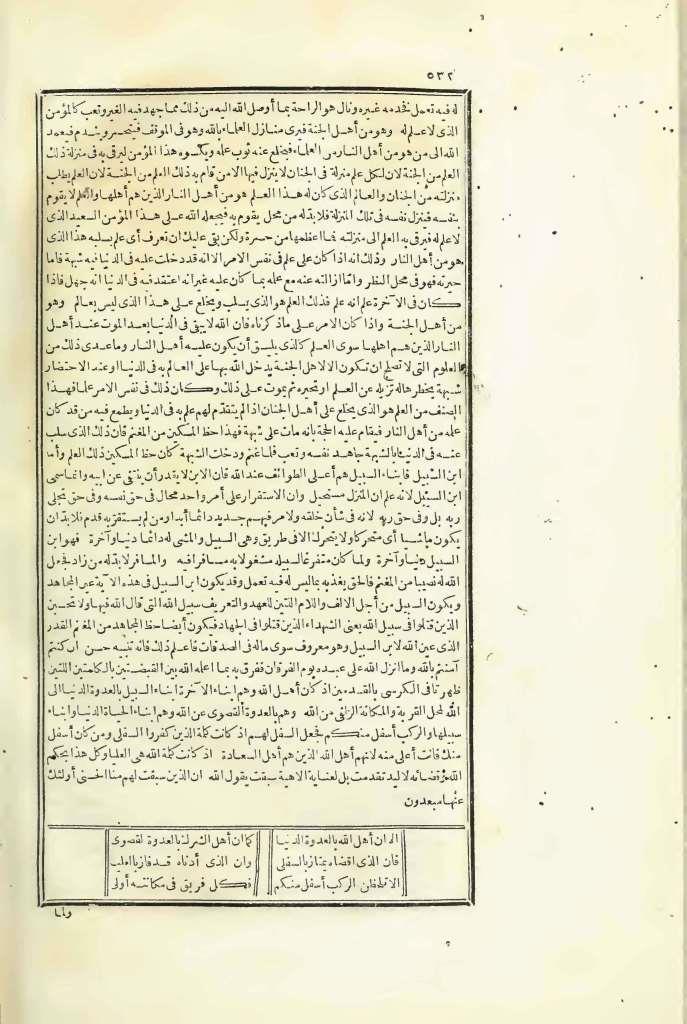 ٥٣٢
له فيه تعمل نخدمه غيره ونال هو الراحة بما أوصل الله اليه من ذلك مما جهد فيه الغير وتعب كالمؤمن
الذى لا علم له وهو من أهل الجنة فيرى منازل العلماء بالله وهو فى الموقف فيتحسر ويندم فيعمد
الله الى من هو من أهل النار من العلماء فيخلع عنه ثوب علمه ويكسوه هذا المؤمن ليرقى به فى منزلة ذلك
العلم من الجنة لان لكل علم منزلة فى الجنان لا ينزل فيها الا من قام به ذلك العلم من الجنة لان العلم يطلب
منزلته من الجنان والعالم الذى كان له هذا العلم هو من أهل النار الذين هم أهلها والعلم لا يقوم
بنفسه فينزل نفسه فى تلك المنزلة فلا بد له من محل يقوم به فيجعله الله على هذا المؤمن السعيد الذى
لا علم له فيرقى به العلم الى منزلته فما أعظمها من حسرة ولكن بقى عليك ان تعرف أى علم يسلبه هذا الذى
هو من أهل النار وذلك انه اذا كان على علم فى نفس الامر الا انه قد دخلت عليه فى الدنيا فيه شبهة فاما
حيرته فهو فى محل النظر واما أزالته عنه مع علمه بما كان عليه غير انه اعتقد فيه فى الدنيا انه جهل فاذا
كان فى الآخرة علم انه علم فذلك العلم هو الذى يسلب ويخلع على هذا الذى ليس بعالم وهو
من أهل الجنة واذا كان الامر على ما ذكرناه فان الله لا يبقى فى الدنيا بعد الموت عند أهل
النار الذين هم أهلها سوى العلم الذى يليق أن يكون عليه أهل النار وما عدى ذلك من
العلوم التى لا تصلح ان تكون الا لاهل الجنة يدخل الله بها على العالم به فى الدنيا او عند الاحتضار
شبهة يخطر هاله تزيله عن العلم او تحيره ثم يموت على ذلك وكان ذلك فى نفس الامر علما فهذا
الصنف من العلم هو الذى يخلع على أهل الجنان اذا لم يتقدم لهم علم به فى الدنيا ويطمع فيه من قد كان
علمه من أهل النار فيقام عليه الحجة بانه مات على شبهة فهذا حظ المسكين من المغنم فان ذلك الذى سلب
عنه فى الدنيا بالشبهة جاهد نفسه وتعب فلما غنم ودخلت الشبهة كان حظ المسكين ذلك العلم وأما
ابن السبيل فابناء السبيل هم أعلى الطوائف عند الله فان الابن لا يقدر أن ينتفى عن ابيه وانما سمى
ابن السبيل لانه علم ان المنزل مستحيل وان الاستقرار على أمر واحد محال فى حق نفسه وفى حق تجلى
ربه بل وفى حق ربه لانه فى شأن خلقه ولا مر فيهم جديد دائما أبدا ومن لم يستقر به قدم فلا بد ان
يكون ماشيا أى متحركا ولا يتحرك الا فى طريق وهى السبيل والمشى له دائما دنيا وآخرة فهو ابن
السبيل دنيا وآخرة ولما كان متفرغا لسبيله مشغولا به مسافرا فيه والمسافر لا بد له من زاد فجعل
الله له نصيبا من المغنم فالحق يغذيه بما ليس له فيه تعمل وقد يكون ابن السبيل فى هذه الآية عين المجاهد
ويكون السبيل من أجل الالف واللام اللتين للعهد والتعريف سبيل الله التى قال الله فيها ولا تحسبن
الذين قتلوا فى سبيل الله يعنى الشهداء الذين قتلوا فى الجهاد فيكون أيضا حظ المجاهد من المغنم القدر
الذى عين الله لابن السبيل وهو معروف سوى ماله فى الصدقات فاعلم ذلك فانه تنبيه حسن ان كنتم
آمنتم بالله وما انزل الله على عبده يوم الفرقان ففرق به بما اعلمه الله بين القبضتين بالكلمتين اللتين
ظهرتا فى الكرسى بالقدمين اذ كان أهل الله وهم ابناء الآخرة ابناء السبيل بالعدوة الدنيا الى
الله لمحل القربة والمكانة الزلفى من الله وهم بالعدوة القصوى عن الله وهم ابناء الحياة الدنيا وابناء
سبيلها والركب أسفل منكم فجعل السفل لهم اذ كانت كلمة الذين كفروا السفلى ومن كان أسفل
منك فانت أعلى منه لانهم أهل الله الذين هم أهل السعادة اذ كانت كلمة الله هى العليا وكل هذا بحكم
الله وقضائه لا ليد تقدمت بل لعناية الاهية سبقت يقول الله ان الذين سبقت لهم منا الحسنى أولئك
عنها مبعدون
الا ان أهل الله بالعدوة الدنيا كما ان أهل الشرك بالعدوة القصوى
فان الذى اقصاه يمتاز بالسفلى وان الذى أدناه قد فاز بالعليا
الا فان الركب أسفل منكم فكل فريق فى مكانته أولى
وأما